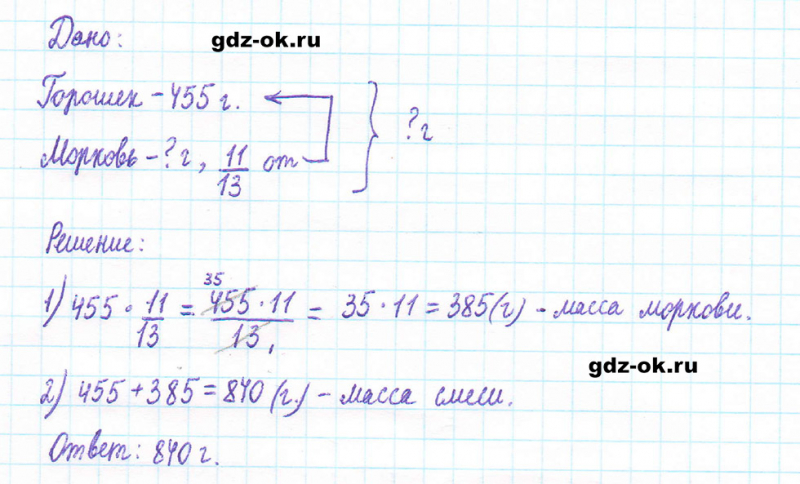 Дано:
gdz-ok.ru
Горошек - 455 г.
Морковь - ? г, 11/13 от
? г
Решение:
1) 455 · 11/13 = 455 · 11/13 = 35 · 11 = 385 (г) - масса моркови.
35
1
gdz-ok.ru
2) 455 + 385 = 840 (г.) - масса смеси.
Ответ: 840 г.